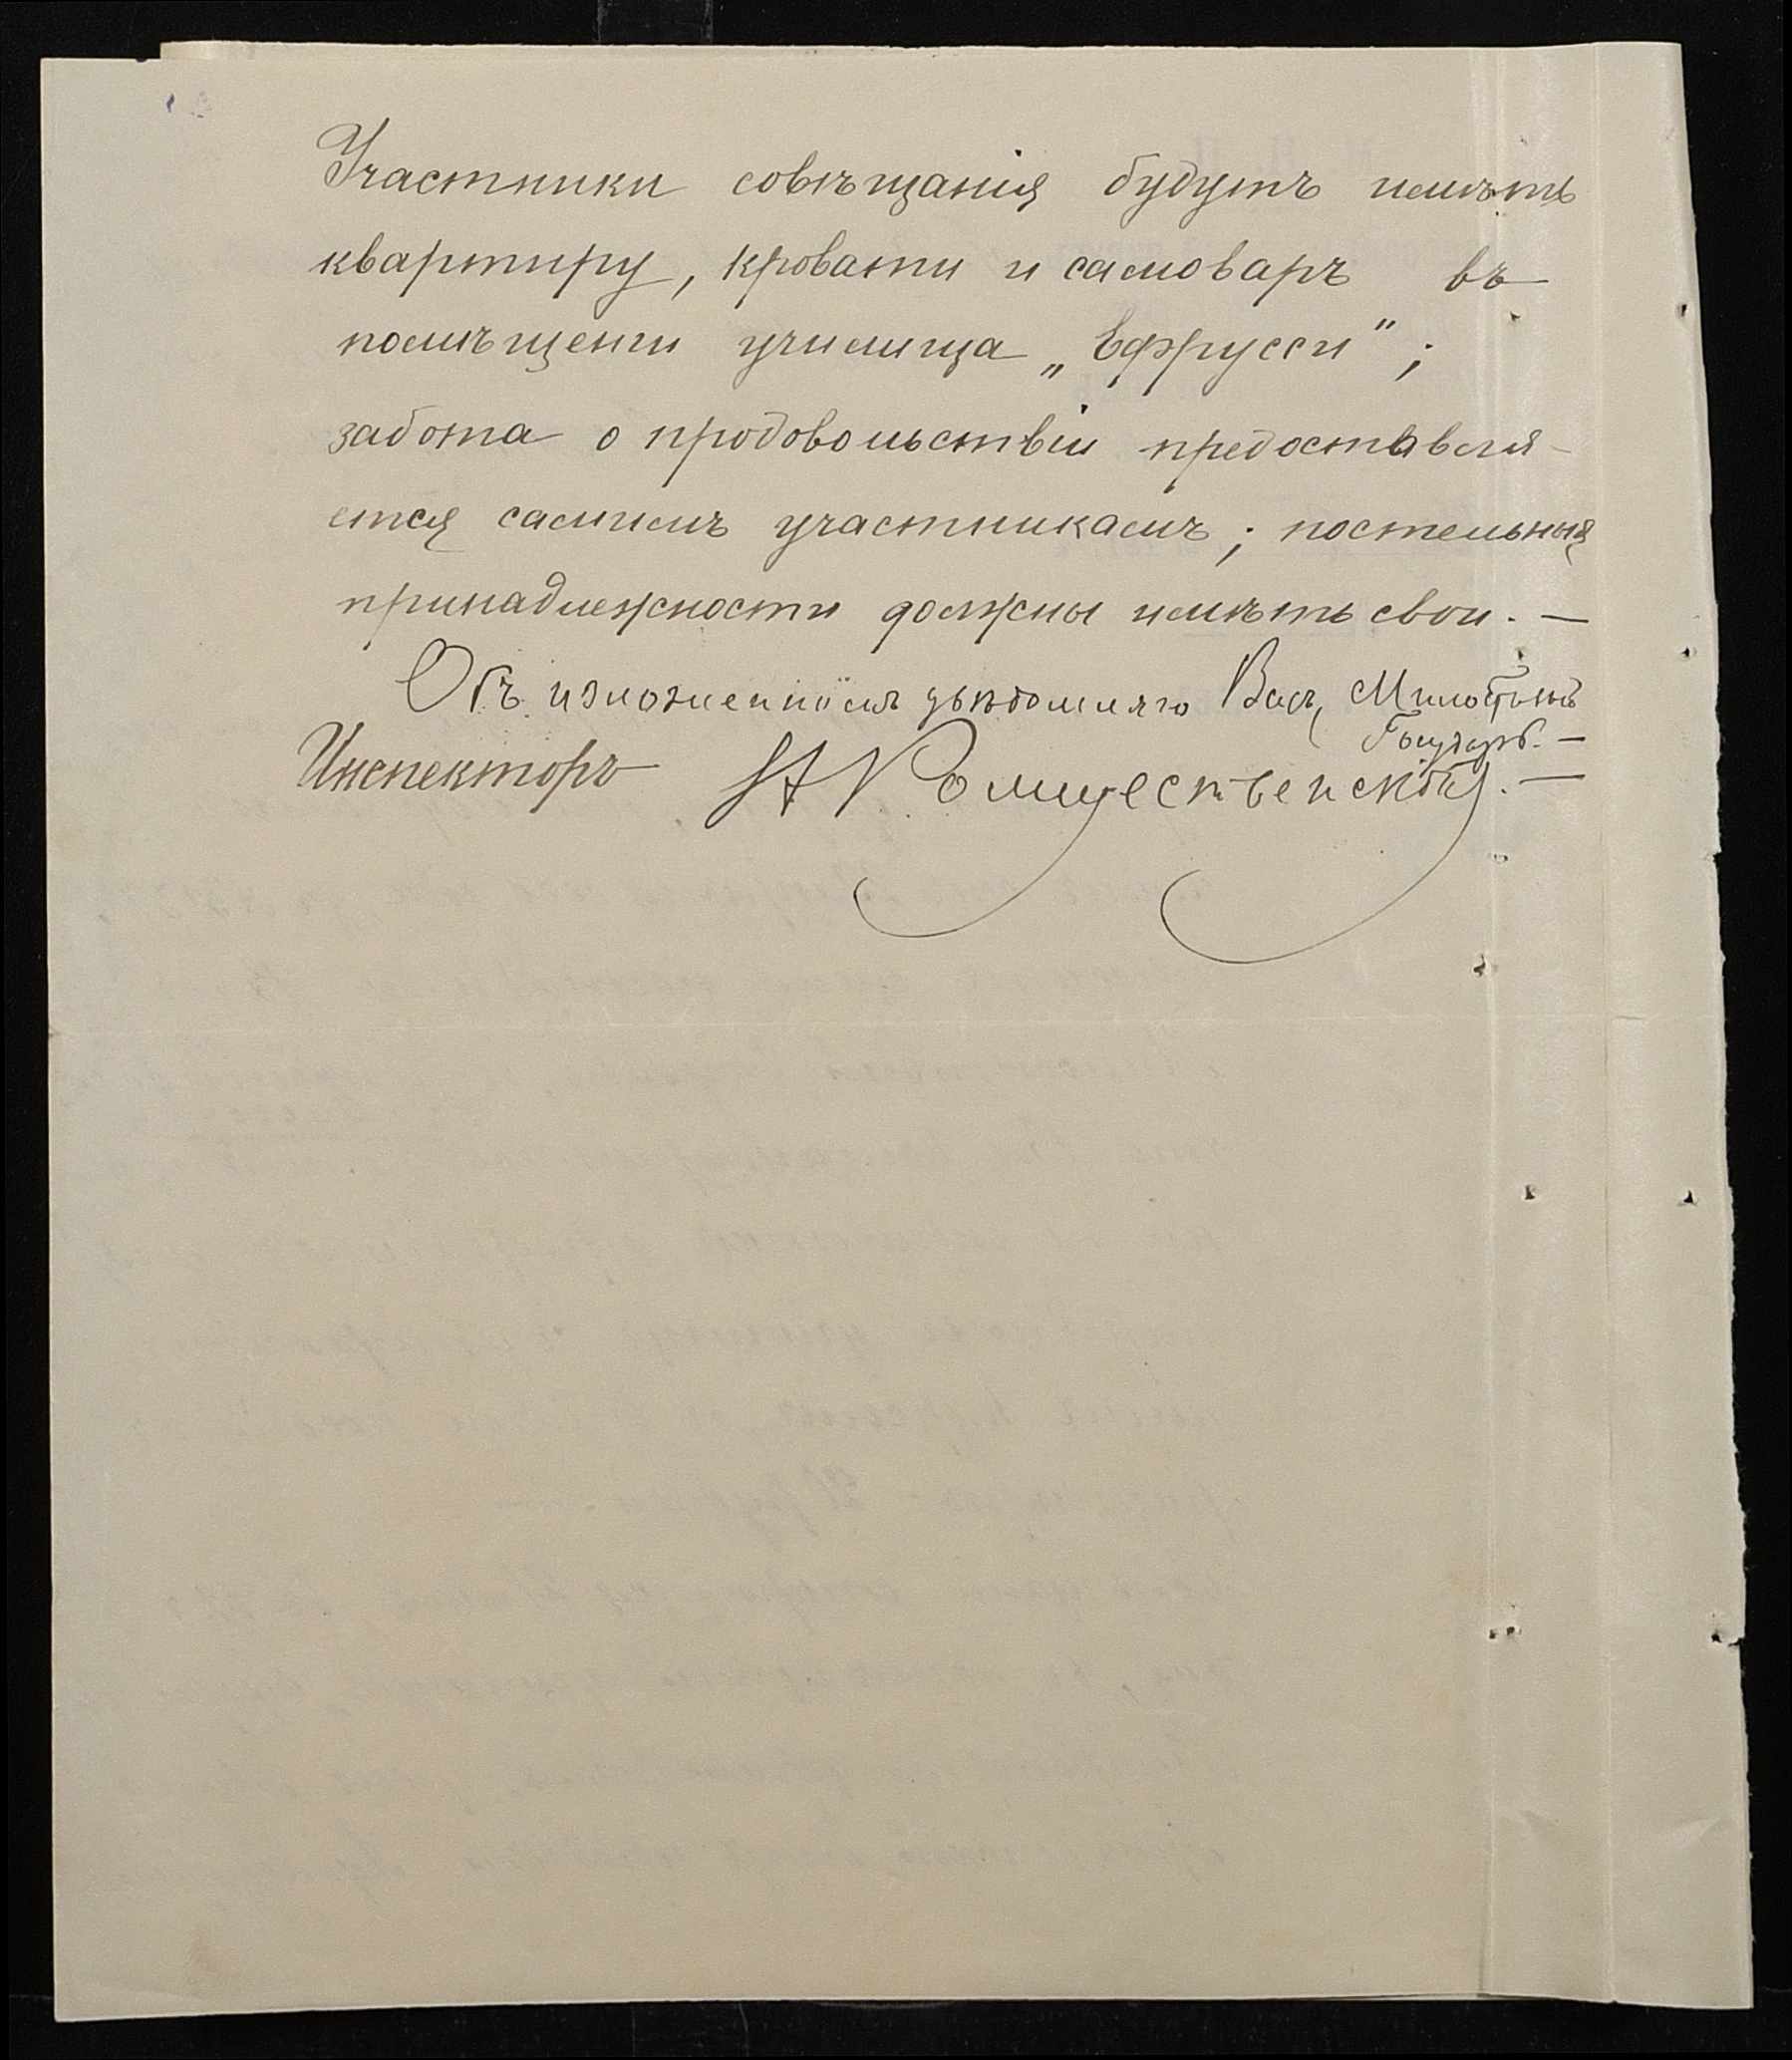 Участники совѣщанія будутъ имѣть
квартиру, кровати и самоваръ въ
помѣщеніи училища „Ефрусси“;
забота о продовольствіи предоставля-
ется самимъ участникамъ; постельныя
принадлежности должны имѣть свои. —
Объ изложенномъ увѣдомляю Васъ, Милостивый
Государь. —
Инспекторъ